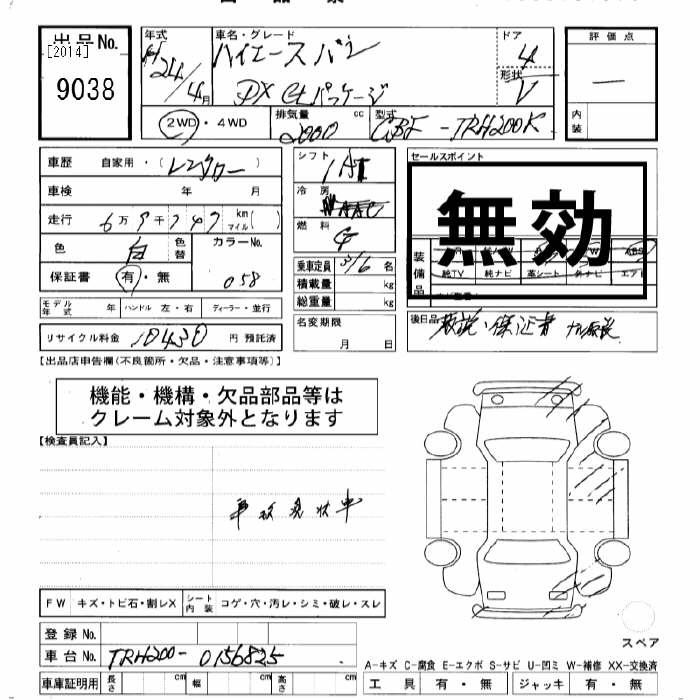 出品No.
[2014]
9038
年式
H24/4月
車名・グレード
ハイエースバン
DX GLパッケージ
ドア
4
形状
V
評価点
—
内装
2WD・4WD
排気量
2000 cc
型式
CBF-TRH200K
車歴 自家用・(レンタカー)
車検 年 月
走行 6万9千747 km マイル( )
色 白 色替
カラーNo.
058
保証書 有・無
モデル年式 年 ハンドル 左・右 ディーラー・並行
リサイクル料金 10430 円 預託済
シフト
IAT
冷房
AAC
燃料
G
乗車定員 3/6 名
積載量 kg
総重量 kg
名変期限
月 日
セールスポイント
無効
装備品
純TV 純ナビ 革シート 外ナビ エアB
後日品
取説・保証書
【出品店申告欄(不良箇所・欠品・注意事項等)】
機能・機構・欠品部品等は
クレーム対象外となります
【検査員記入】
事故現状車
FW キズ・トビ石・割レX シート内装 コゲ・穴・汚レ・シミ・破レ・スレ
登録No.
車台No. TRH200-0156825
車庫証明用 長さ cm 幅 cm 高さ cm
スペア
A-キズ C-腐食 E-エクボ S-サビ U-凹ミ W-補修 XX-交換済
工具 有・無 ジャッキ 有・無